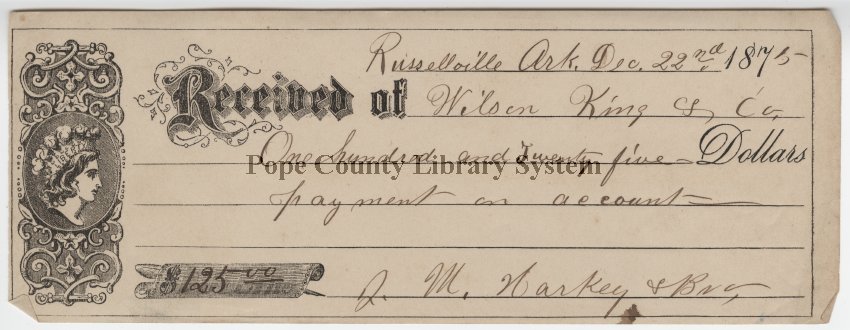 Russellville Ark. Dec. 22nd 1875
Received of Wilson King & Co,
One hundred and Twenty five Dollars
Pope County Library System
payment on account
LIBERTY
$125.00
J. M. Harkey & Bro,